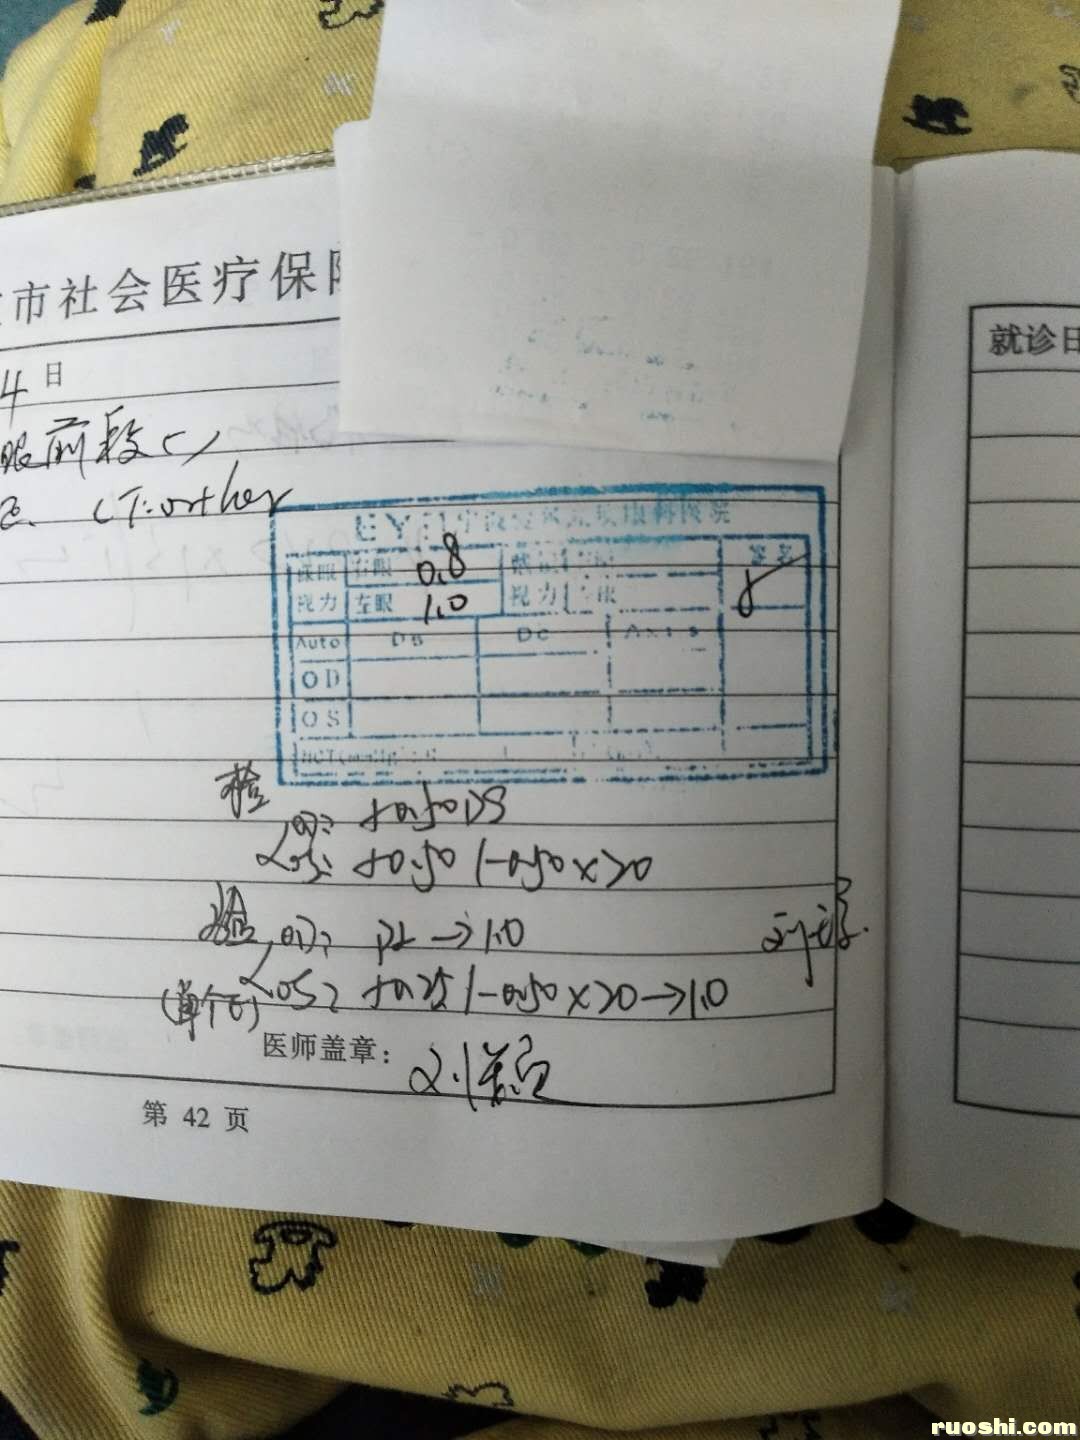 市社会医疗保
就诊日
4 日
眼前段(-)
CT: orthor
EY
裸眼 右眼 0.8
视力 左眼 1.0
视力
签名
Auto DS DC Axis
OD
OS
检 OD: +0.50DS
OS: +0.50/-0.50×20
验 OD: PL→1.0
OS: +0.25/-0.50×20→1.0
(单个E)
医师盖章:
第 42 页
ruoshi.com